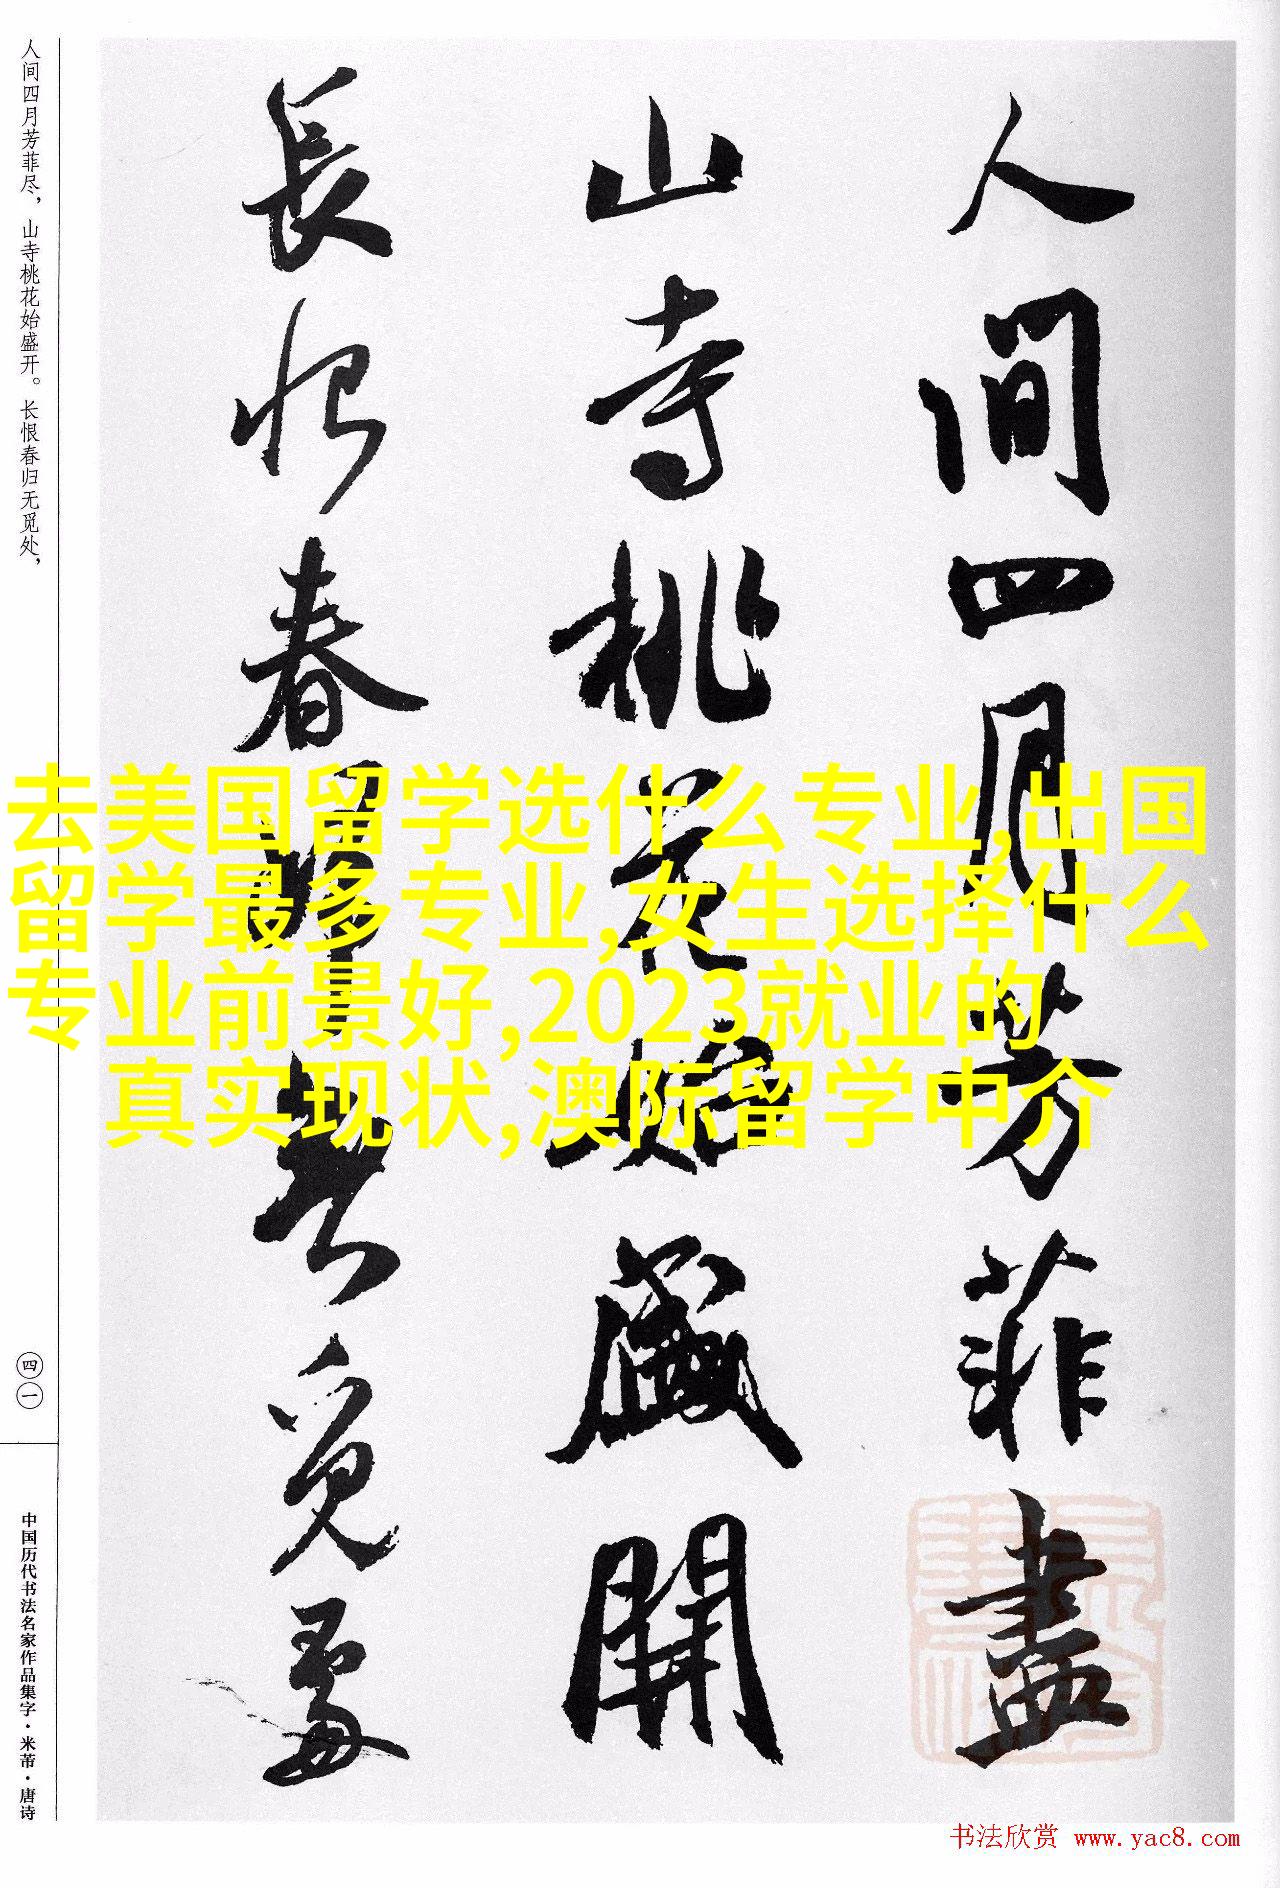 人間四月芳菲盡
山寺桃花始盛開
長恨春歸無覓處
人间四月芳菲尽，山寺桃花始盛开。长恨春归无觅处，
四一
中国历代书法名家作品集字·米芾·唐诗
去美国留学选什么专业,出国
留学最多专业,女生选择什么
专业前景好,2023就业的
真实现状,澳际留学中介
书法欣赏 www.yac8.com